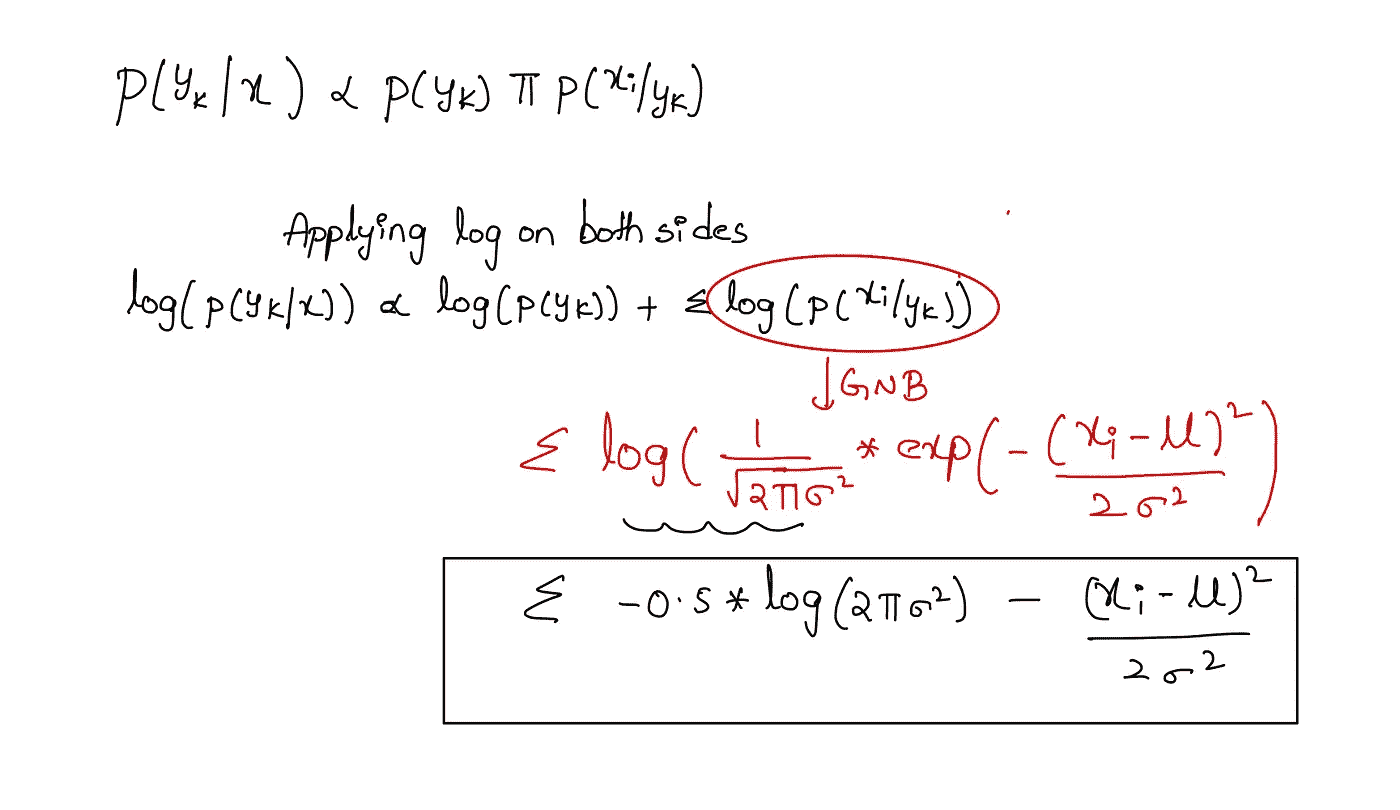 P(yₖ/x) ∝ P(yₖ) π P(xᵢ/yₖ)
Applying log on both sides
log(P(yₖ/x)) ∝ log(P(yₖ)) + Σ log(P(xᵢ/yₖ))
↓ GNB
Σ log( 1/√2πσ² * exp( - (xᵢ - μ)²/2σ² )
Σ -0.5 * log(2πσ²) - (xᵢ - μ)²/2σ²